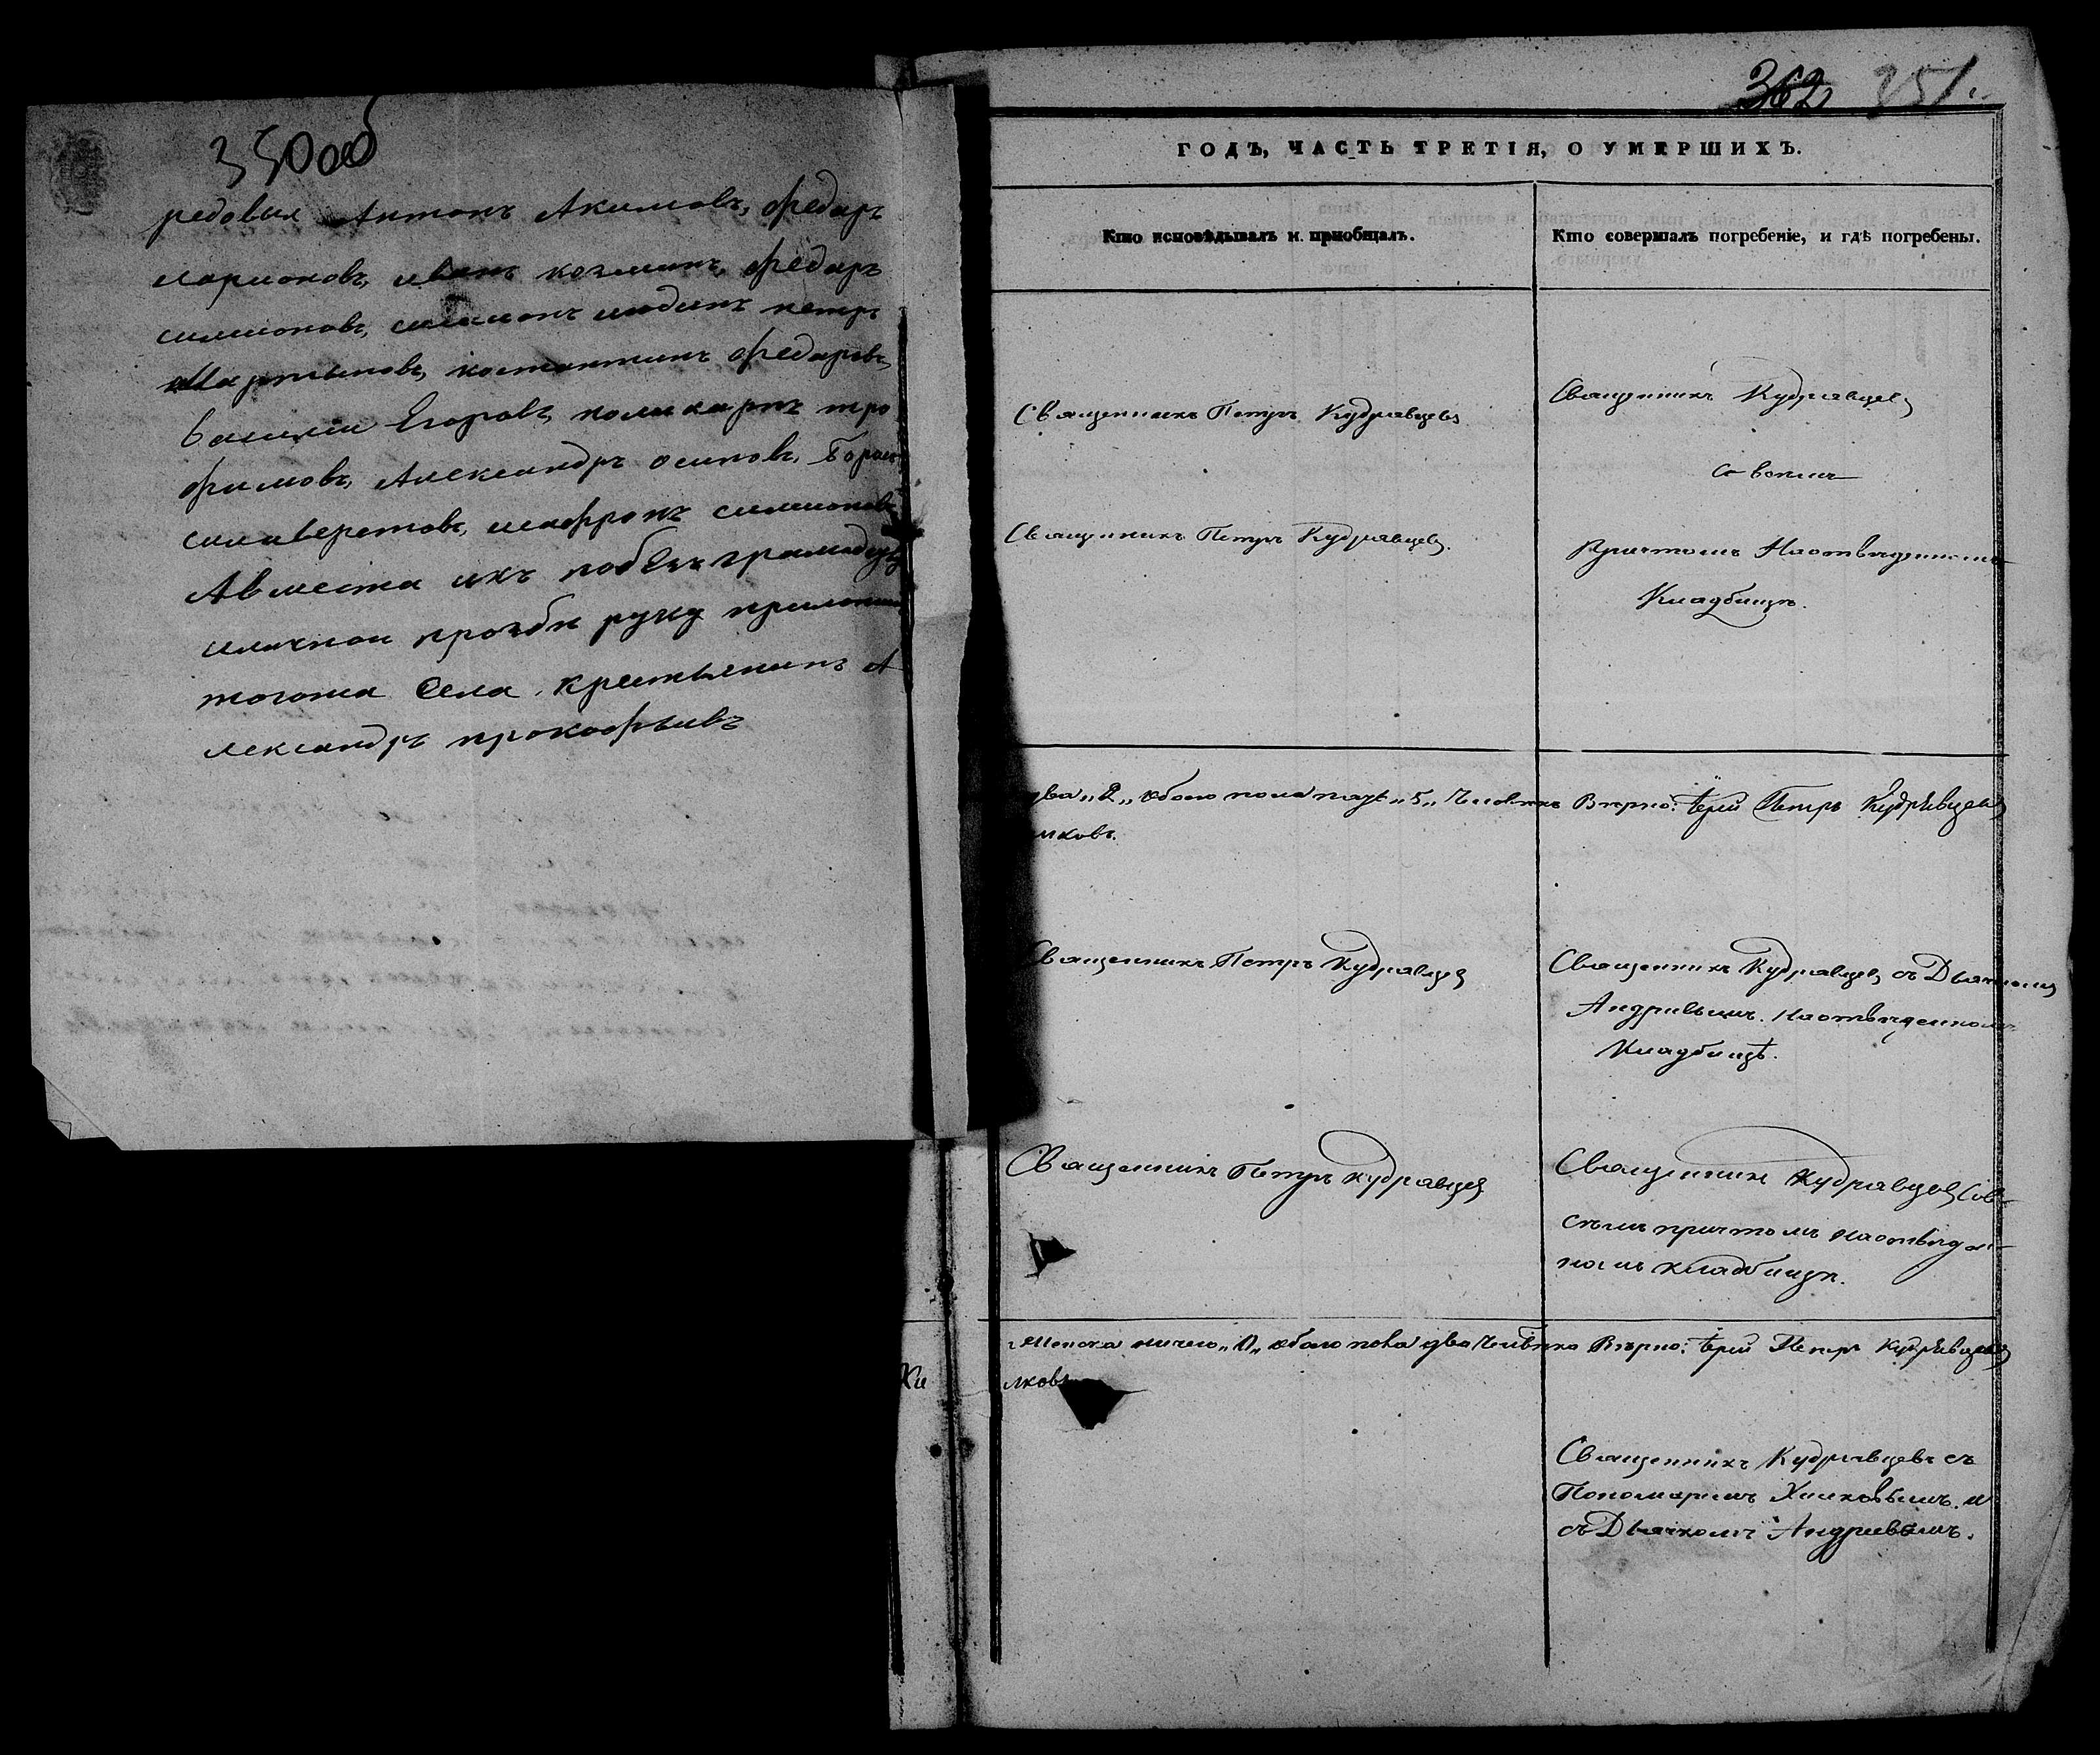 350об
редовых Антонъ Акимовъ, федаръ
ларионовъ, иванъ козминъ, федаръ
симионовъ, симионъ июдинъ петръ
Мартыновъ, костантинъ федаровъ,
василии Егоровъ, поликарпъ тро
фимовъ, Александръ осиповъ,
силиверстовъ, софронъ симионовъ
Авместа ихъ
иличнои прозбе руку приложилъ
тогожа Села крестьянинъ А
лександръ прокофьивъ
362 351.
ГОДЪ, ЧАСТЬ ТРЕТІЯ, О УМЕРШИХЪ.
Кто исповѣдывалъ и приобщалъ.
Кто совершалъ погребеніе, и гдѣ погребены.
Священникъ Петръ Кудрявцевъ
Священникъ Кудрявцевъ
со всемъ
Священникъ Петръ Кудрявцевъ.
Причтомъ Наотведенномъ
Кладбищѣ.
два „2„ обоего пола пять „5„ Человѣкъ Вѣрно: Іерей Петръ Кудрявцевъ
лковъ.
Священникъ Петръ Кудрявцевъ
Священникъ Кудрявцевъ съ Дьячкомъ
Андриевымъ. Наотведенномъ
Кладбищѣ.
Священникъ Петръ Кудрявцевъ
Священникъ Кудрявцевъ Сов
сѣмъ причтомъ наотведен
номъ кладбищѣ.
женска ничего „0„ обоего пола два Человѣка Вѣрно: Іерей Петръ Кудрявцевъ
Хи лковъ
Священникъ Кудрявцевъ съ
Пономаремъ Хилковымъ. и
съ Дьячкомъ Андриевымъ.